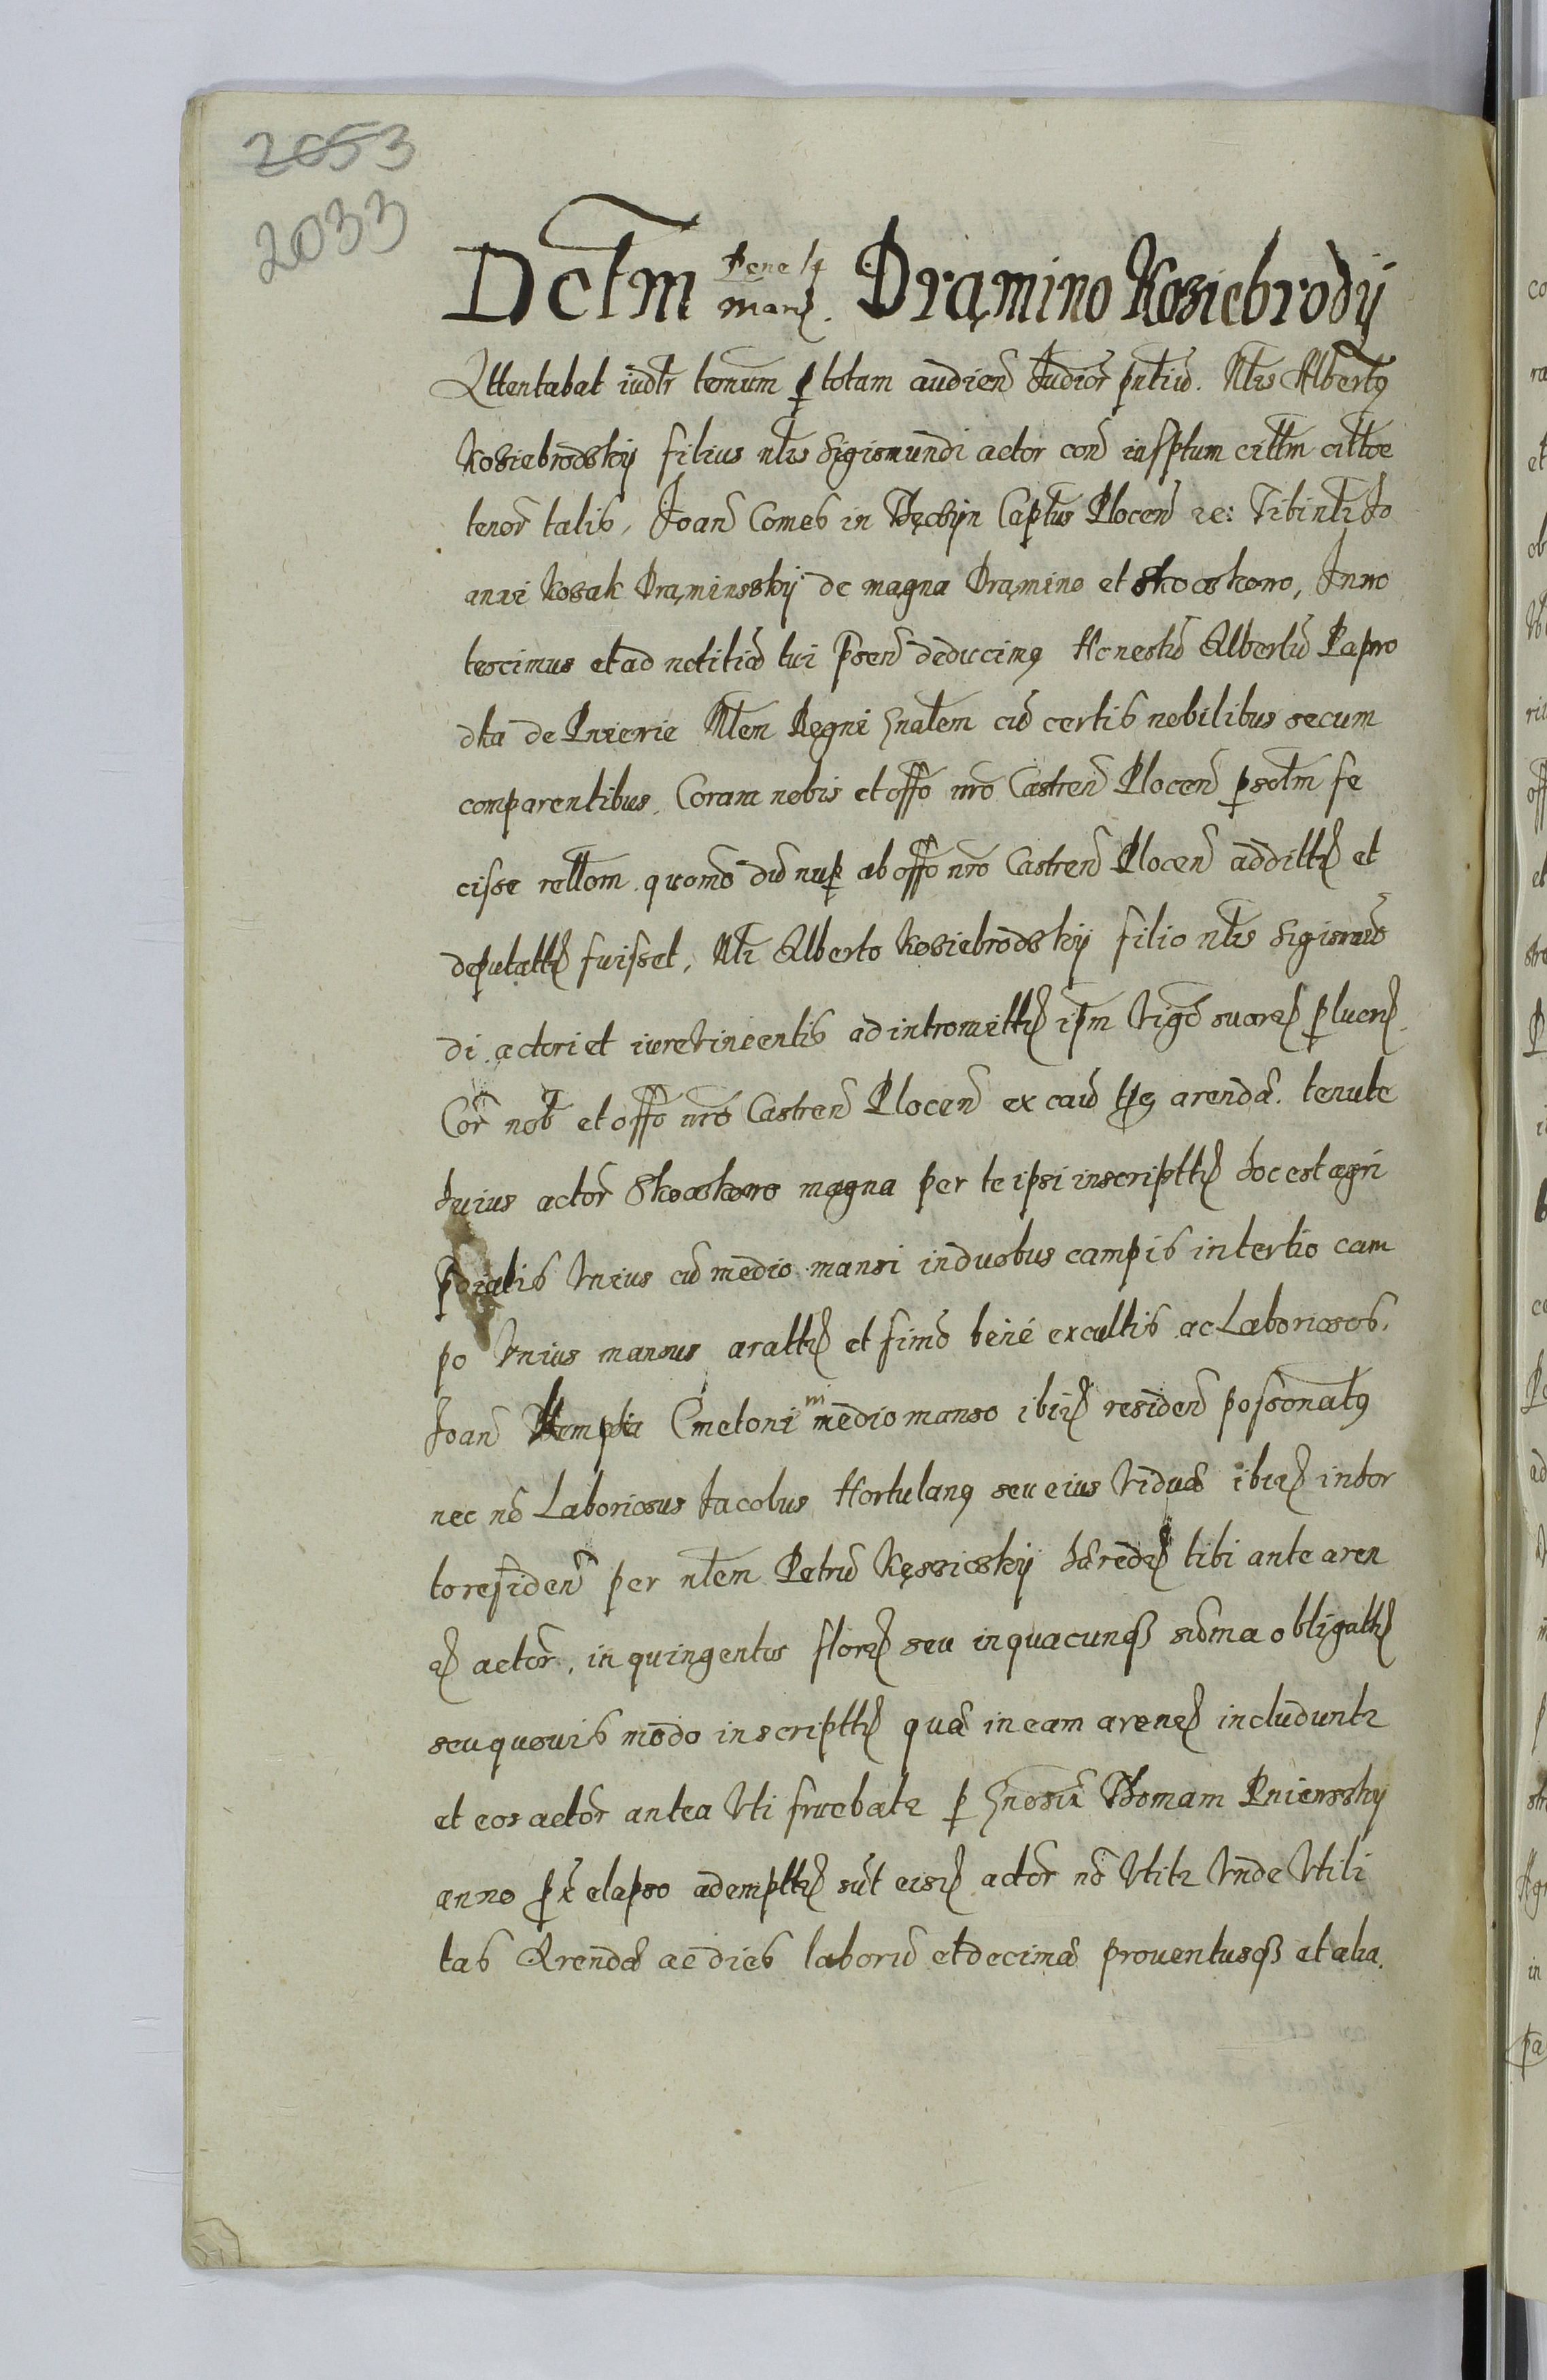 2053
2033
Dctm Pene
Mar Drąmino Kosiebrodÿ
Attentabat iudtr termum p totam audien Judior pntiu. Ntis Albertg
Kosiebrodskÿ filius ntis Sigismundi actor con insptum cittm cittoe
tenor talis, Joan Comes in Thęcżÿn Captus Plocen ic: Tibi nti Jo
anni Kosak Drąminsskÿ de magna Drąmino et Inno
tescimus et ad notitia tui psen deducimg Honestu Albertu Papro
dka de Ntem Regni gnatem cu certis nobilibus secum
comparentibus. Coram nobis et offo nro Castren Plocen psotm fe
cisse rettom quomo du nup ab offo nro Castren Plocen addittz et
deputattz fuisset, Nti Alberto Kosiebrodskÿ filio ntis Sigismu
di actori et iure vincentis ad intromittz ipm vigo suorz p lucrz
Cor nob et offo nro Castren Plocen ex cau arenda tenute
huius actor magna per te ipsi inscripttz hoc est agri
pdialis vnius cu medio mansi in duobus campis in tertio cam
po vnius mansus arattz et fimo bene excultis ac Laboriosos.
Joan Cmetoni in medio manso ibiz residen possonatg
nec no Laboriosus Jacobus Hortulang seu eius vidua ibiz in hor
to residen per ntem Petru hæredz tibi ante aren
z actor, in quingentos florz seu in quacunqz suma obligattz
seu quouis modo inscripttz qua in eam arenz includuntr
et eos actor antea vti fruebatr p gnosu Thomam Pniewskÿ
anno px elapso adempttz sut eisz actor no vtitr vnde vtili
tas Arenda ac dies laboriu et decima prouentusqz et alia.